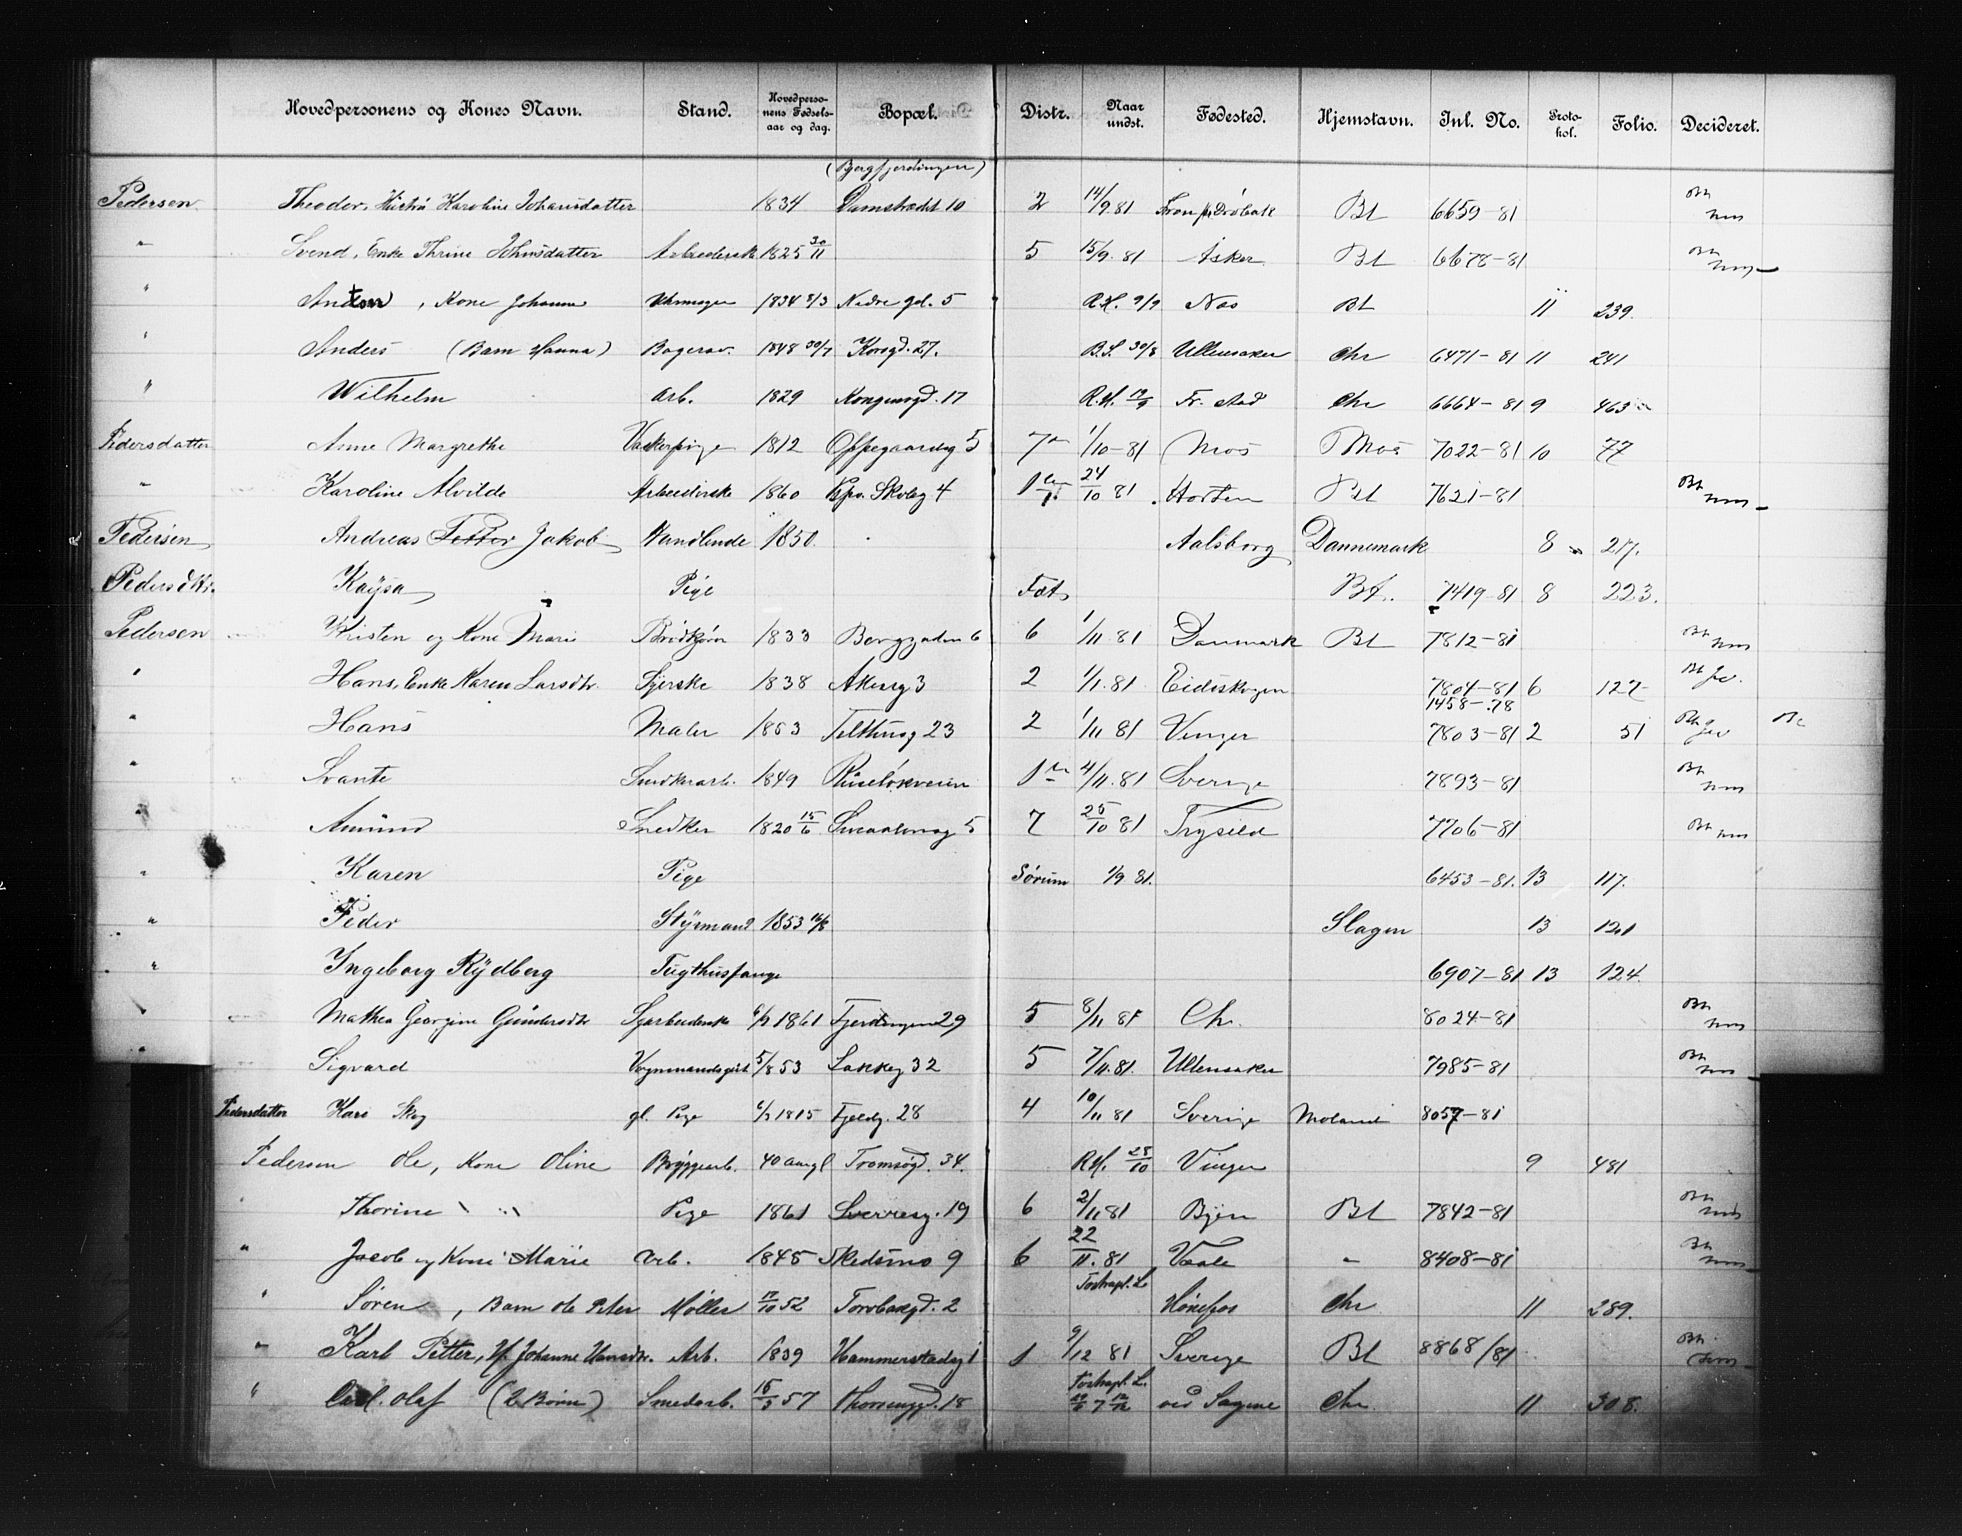 Hovedpersonens og Kones Navn. Stand. Hovedperso- nens Fødsels- aar og dag. Bopæl. Distr. Naar undst. Fødested. Hjemstavn. Jnl. No. Proto- kol. Folio. Decideret.
(Bergfjerdingen)
Pedersen Theodor, Hustru Karoline Johansdatter 1834 Damstrædet 10 2 14/9 81 Drøbak Bt 6659-81
" Svend, Enke Thrine Johnsdatter Arbeiderske 1825 30/11 5 15/9 81 Asker Bt 6678-81
" Anton, Kone Johanne Uhrmager 1834 8/3 Nedre gd. 5 R.H. 9/9 Næs Bt 11 239.
" Anders (Barn Hanna) Bagerav. 1848 30/7 Korsgd. 27. B.S. 30/8 Ullensaker Chr 6471-81 11 241
" Wilhelm Arb. 1829 Kongensgd. 17 R.H. Fr. stad Chr 6664-81 9 463
Pedersdatter Anne Margrethe Vaskerpige 1812 Oppegaardsg 5 7 1/10-81 Mos Mos 7022-81 10 77
" Karoline Alvilde Arbeiderske 1860 Skoleg 4 1 24/10 81 Horten Bt 7621-81
Pedersen Andreas Petter Jakob Handlende 1850. Aalborg Dannemark 8 217.
Pedersdtr. Kaysa Pige Fet Bt. 7419-81 8 223.
Pedersen Kristen og Kone Marie Brødkjører 1833 Berggaden 6 6 1/11 81 Danmark Bt 7812-81
" Hans, Enke Karen Larsdtr. Syerske 1838 Akersg 3 2 1/11.81 Eidskogen 7804-81 6 127
1458-78
" Hans Maler 1853 Telthusg 23 2 1/11 81 Vinger 7803-81 2 51
" Svante Snedkerarb. 1849 Ruseløkveien 1 4/11.81 Sverige 7893-81
" Amund Snedker 1820 15/6 5 7 25/10 81 Trysild 7706-81
" Karen Pige Sørum 1/9 81. 6453-81. 13 117.
" Peder Styrmand 1853 Slagen 13 121
" Ingeborg Rydberg Tugthusfange 6907-81 13 124.
" Mathea Georgine Gundersdtr Syarbeiderske 1861 Fjerdingen 29 5 8/11 81 Chr. 8024-81
" Sigvard Vognmandsgut 5/8 53 Lakkeg 32 5 7/11.81. Ullensaker 7985-81
Pedersdatter Kari Skog gl. Pige 1815 Fjeldg. 28 4 10/11 81 Sverige Moland 8057-81
Pedersen Ole, Kone Oline Bryggearb. 40 aar gl Tromsøgd. 34. R.H. 28/10 Vinger 9 481
" Thorine " Pige 1861 Sverresg. 19 6 2/11 81 Byen Bt 7842-81
" Jacob og Kone Marie Arb. 1845 Skedsmo 9 6 22/11.81 Vaale " 8408-81
" Søren, Barn Ole Peter Møller 17/10 52 Torvbakgd. 2 Fostrapl. L. Hønefos Chr 11 289.
" Karl Petter, Hf. Johanne Hansdtr. Arb. 1839 Hammerstadsg 1 1 9/12 81 Sverige Bt 8868/81
" Carl Olaf (2 Børn) Smedarb. 15/3 57 Thorsenggd. 18 Fostrapl. L. ved Sagene Chr. 11 308.